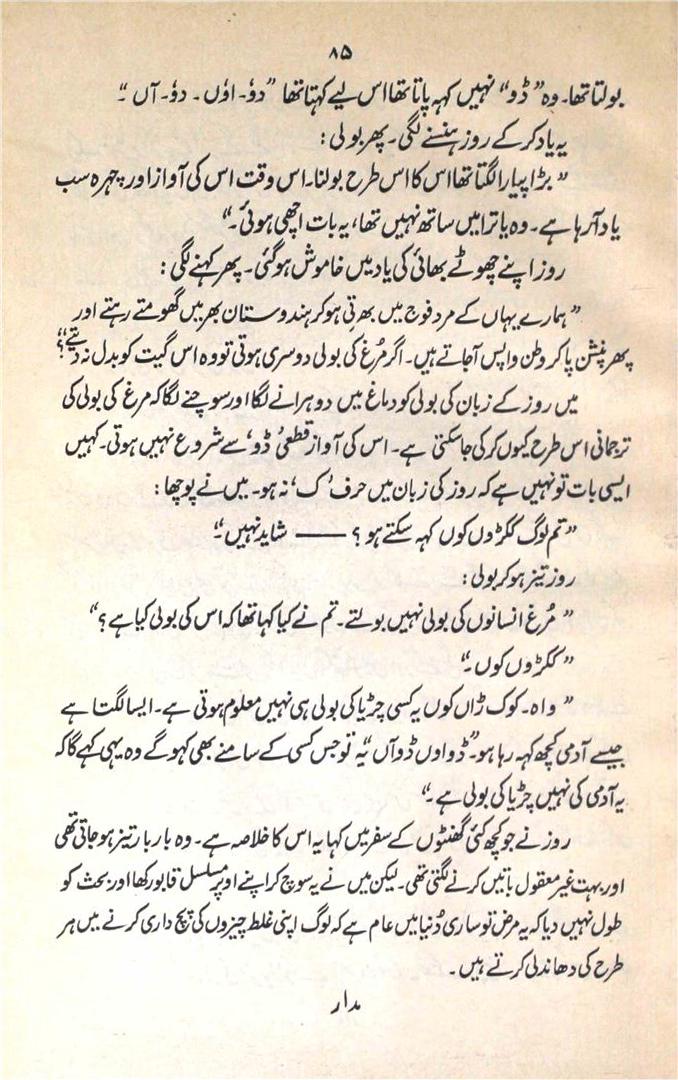 ۸۵
بولتا تھا۔ وہ ”ڈو“ نہیں کہہ پاتا تھا اس لیے کہتا تھا ”دوٗ۔ اوٗں۔ دوٗ۔ آں“
یہ یاد کر کے روز ہنسنے لگی۔ پھر بولی:
”بڑا پیارا لگتا تھا اس کا اس طرح بولنا۔ اس وقت اس کی آواز اور چہرہ سب
یاد آرہا ہے۔ وہ یاترا میں ساتھ نہیں تھا، یہ بات اچھی ہوئی۔“
روز اپنے چھوٹے بھائی کی یاد میں خاموش ہوگئی۔ پھر کہنے لگی:
”ہمارے یہاں کے مرد فوج میں بھرتی ہو کر ہندوستان بھر میں گھومتے رہتے اور
پھر پنشن پاکر وطن واپس آجاتے ہیں۔ اگر مُرغ کی بولی دوسری ہوتی تو وہ اس گیت کو بدل نہ دیتے؟“
میں روز کے زبان کی بولی کو دماغ میں دوہرانے لگا اور سوچنے لگا کہ مرغ کی بولی کی
ترجمانی اس طرح کیوں کر کی جاسکتی ہے۔ اس کی آواز قطعی ’ڈو‘ سے شروع نہیں ہوتی۔ کہیں
ایسی بات تو نہیں ہے کہ روز کی زبان میں حرف ’ک‘ نہ ہو۔ میں نے پوچھا:
”تم لوگ ککڑوں کوں کہہ سکتے ہو؟ —— شاید نہیں“۔
روز تیز ہو کر بولی:
”مُرغ انسانوں کی بولی نہیں بولتے۔ تم نے کیا کہا تھا کہ اس کی بولی کیا ہے؟“
”ککڑوں کوں۔“
”واہ۔ کوک ڑاں کوں یہ کسی چڑیا کی بولی ہی نہیں معلوم ہوتی ہے۔ ایسا لگتا ہے
جیسے آدمی کچھ کہہ رہا ہو۔ ”ڈواوں ڈوآں“ یہ تو جس کسی کے سامنے بھی کہو گے وہ یہی کہے گا کہ
یہ آدمی کی نہیں چڑیا کی بولی ہے۔“
روز نے جو کچھ کئی گھنٹوں کے سفر میں کہا یہ اس کا خلاصہ ہے۔ وہ بار بار تیز ہوجاتی تھی
اور بہت غیر معقول باتیں کرنے لگتی تھی۔ لیکن میں نے یہ سوچ کر اپنے اوپر مسلسل قابو رکھا اور بحث کو
طول نہیں دیا کہ یہ مرض تو ساری دُنیا میں عام ہے کہ لوگ اپنی غلط چیزوں کی پچ داری کرنے میں ہر
طرح کی دھاندلی کرتے ہیں۔
مدار